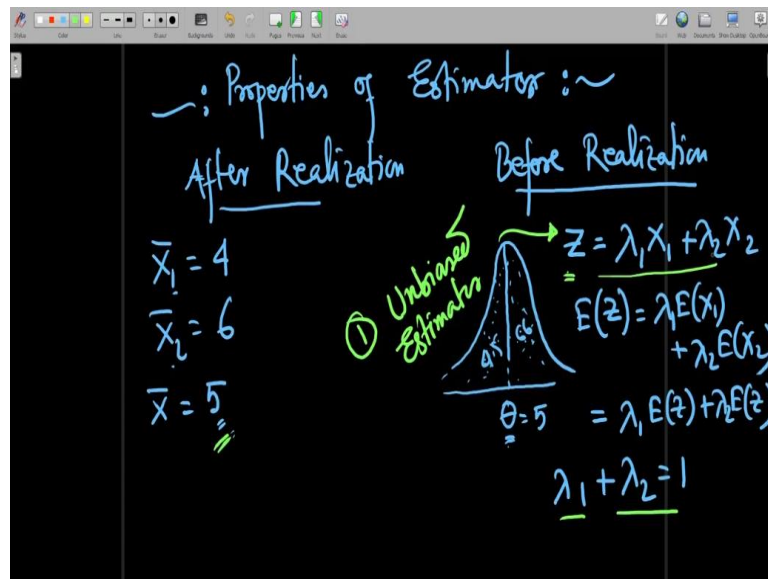 Stylus
Color
Line
Eraser
Backgrounds
Undo
Redo
Pages
Previous
Next
Erase
Board
Web
Documents
Show Desktop
OpenBoard
~: Properties of Estimator :~
After Realization
X̄₁ = 4
X̄₂ = 6
X̄ = 5
Before Realization
① Unbiased
Estimator
Z = λ₁X₁ + λ₂X₂
E(Z) = λ₁E(X₁)
+ λ₂E(X₂)
θ = 5
= λ₁E(Z) + λ₂E(Z)
λ₁ + λ₂ = 1